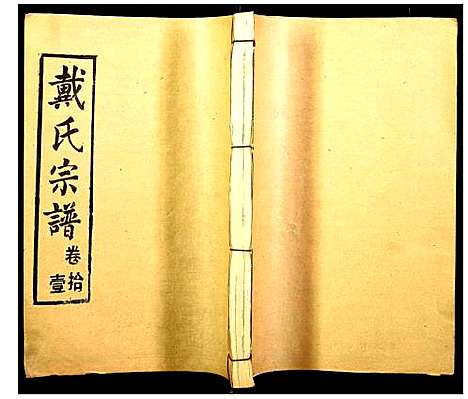 戴氏宗譜
卷拾壹